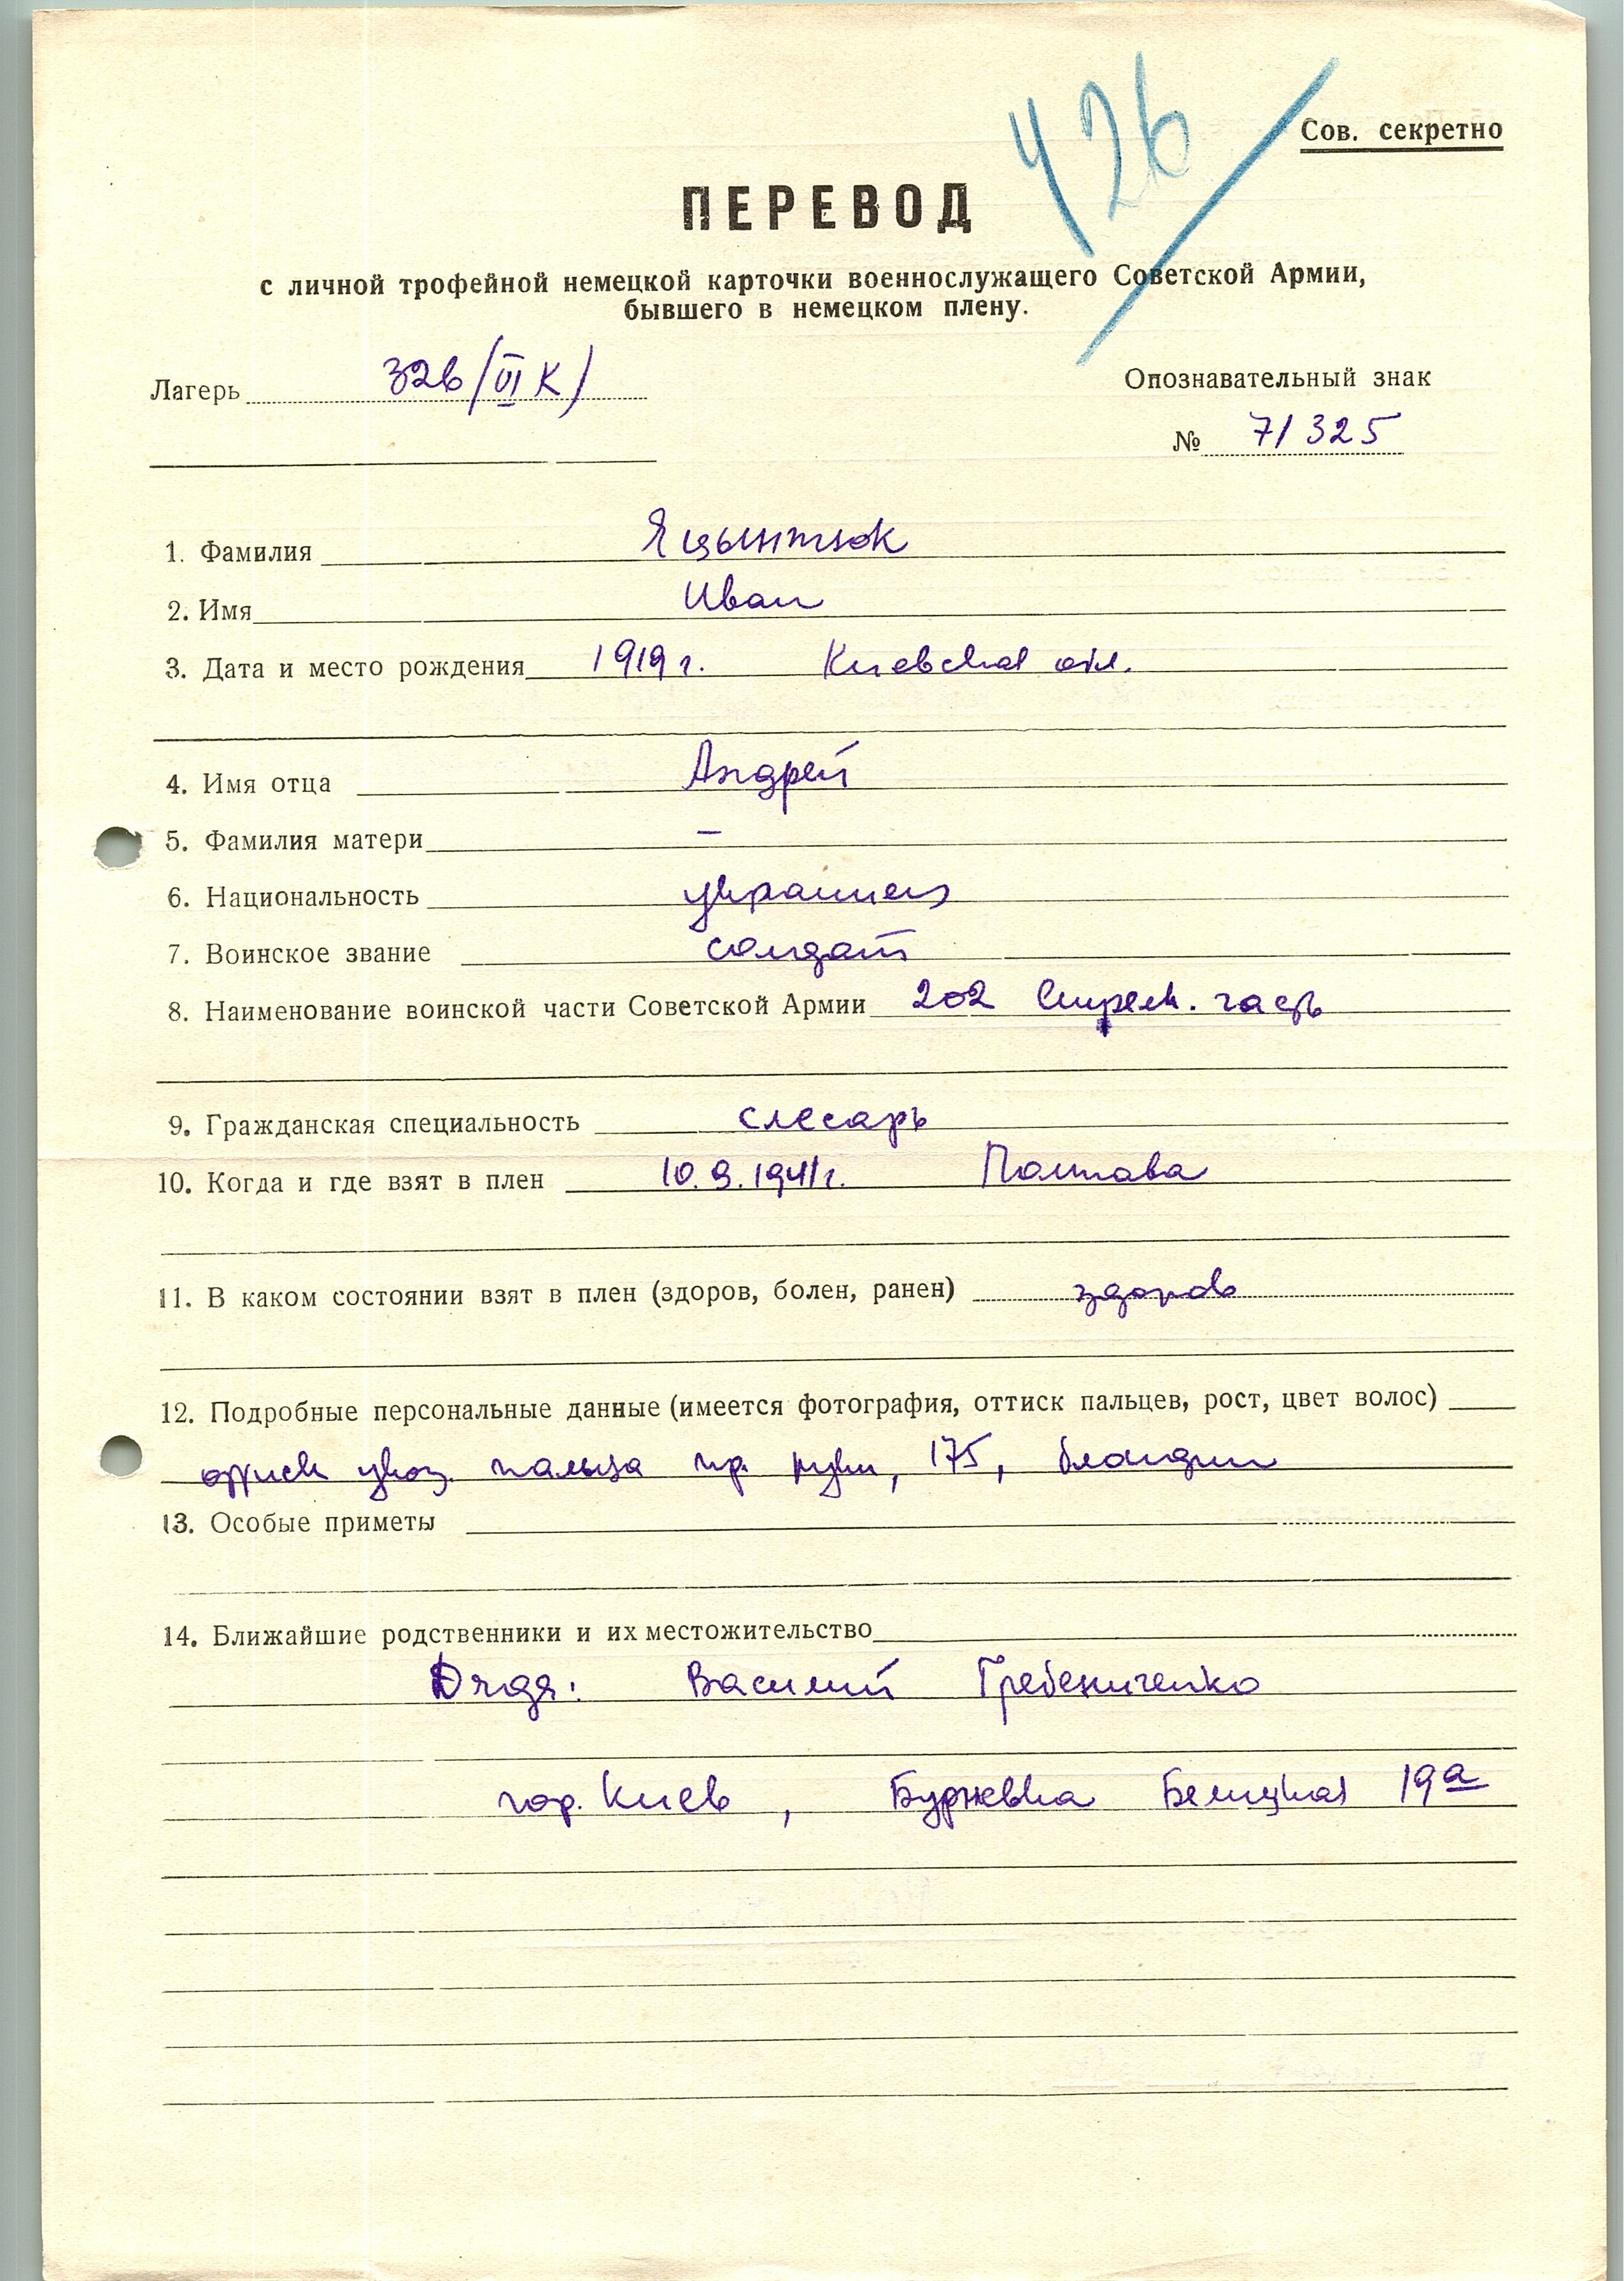 426
Сов. секретно
ПЕРЕВОД
с личной трофейной немецкой карточки военнослужащего Советской Армии,
бывшего в немецком плену.
Лагерь 326/VI К/
Опознавательный знак
№ 71325
1. Фамилия Яцынтюк
2. Имя Иван
3. Дата и место рождения 1919 г. Киевская обл.
4. Имя отца Андрей
5. Фамилия матери —
6. Национальность украинец
7. Воинское звание солдат
8. Наименование воинской части Советской Армии 202 Стрелк. часть
9. Гражданская специальность слесарь
10. Когда и где взят в плен 10.9.1941г. Полтава
11. В каком состоянии взят в плен (здоров, болен, ранен) здоров
12. Подробные персональные данные (имеется фотография, оттиск пальцев, рост, цвет волос)
оттиск указ. пальца пр. руки, 175, блондин
13. Особые приметы
14. Ближайшие родственники и их местожительство
Дядя: Василий Гребениченко
гор. Киев, Белицкая 19а